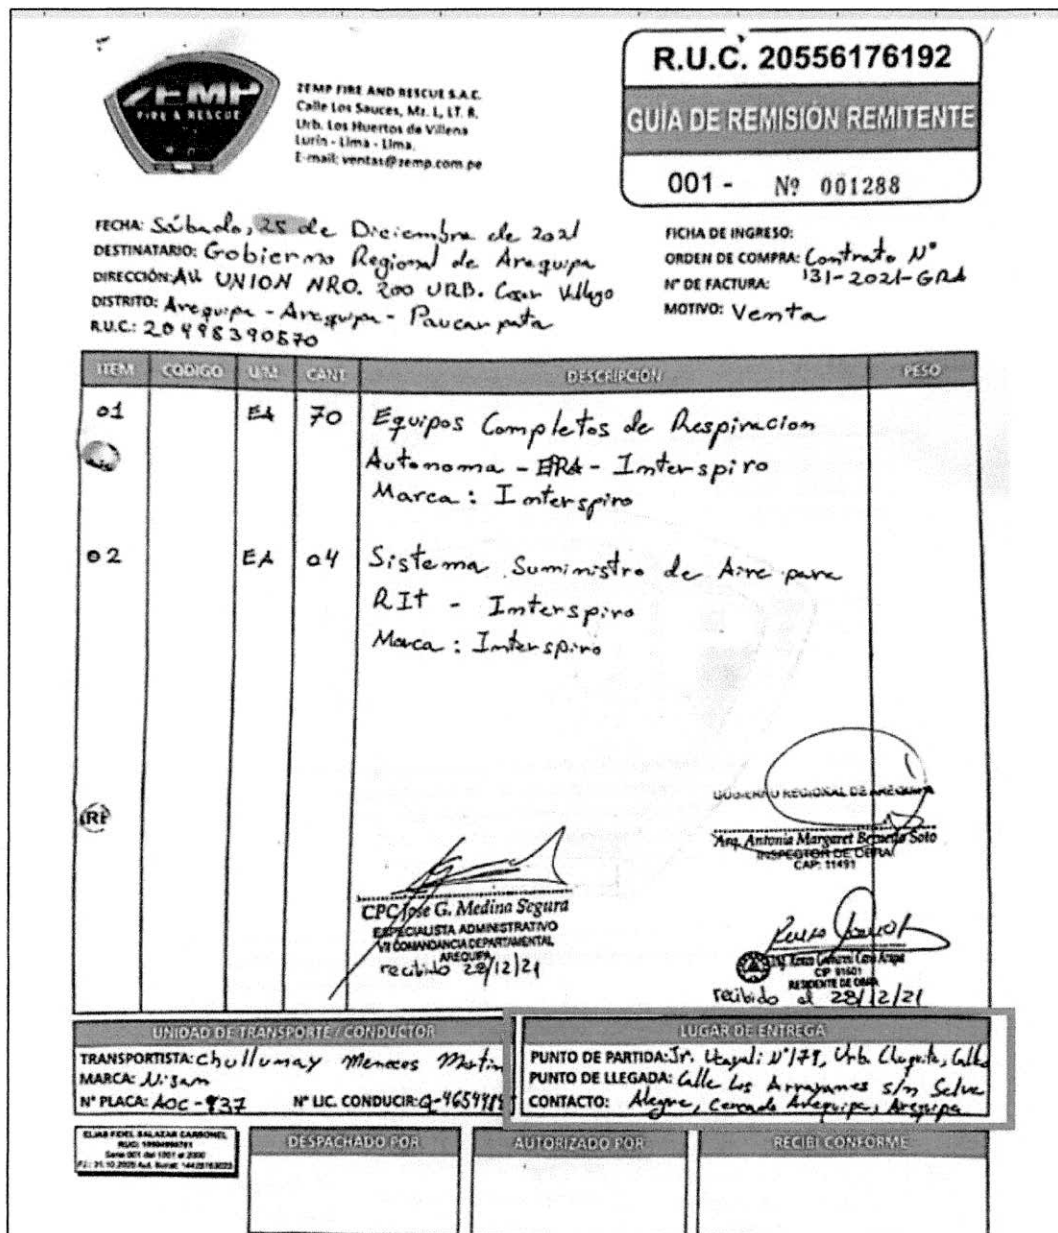 ZEMP
FIRE & RESCUE
ZEMP FIRE AND RESCUE S.A.C.
Calle Los Sauces, Mz. L, LT. 8.
Urb. Los Huertos de Villena
Lurín - Lima - Lima.
E-mail: ventas@zemp.com.pe
R.U.C. 20556176192
GUÍA DE REMISIÓN REMITENTE
001 - Nº 001288
FECHA: Sábado, 25 de Diciembre de 2021
DESTINATARIO: Gobierno Regional de Arequipa
DIRECCIÓN: AV UNION NRO. 200 URB. Cesar Vallejo
DISTRITO: Arequipa - Arequipa - Paucarpata
R.U.C.: 20498390570
FICHA DE INGRESO:
ORDEN DE COMPRA: Contrato Nº
Nº DE FACTURA: 131-2021-GRA
MOTIVO: Venta
ITEM CODIGO U/M. CANT. DESCRIPCION PESO
01 EA 70 Equipos Completos de Respiracion
Autonoma - ERA - Interspiro
Marca: Interspiro
02 EA 04 Sistema Suministro de Aire para
RIt - Interspiro
Marca: Interspiro
GOBIERNO REGIONAL DE AREQUIPA
Arq. Antonia Margaret Soto
INSPECTOR DE OBRA
CAP: 11491
CPC Jose G. Medina Segura
ESPECIALISTA ADMINISTRATIVO
VII COMANDANCIA DEPARTAMENTAL
AREQUIPA
recibido 28/12/21
CIP 91601
RESIDENTE DE OBRA
recibido el 28/12/21
UNIDAD DE TRANSPORTE / CONDUCTOR
TRANSPORTISTA: Chullumay Meneces Martin
MARCA: Nisan
Nº PLACA: AOC-937 Nº LIC. CONDUCIR:
LUGAR DE ENTREGA
PUNTO DE PARTIDA: Jr. Ucayali Nº179, Urb. Chuquito, Callao
PUNTO DE LLEGADA: Calle Los Arrayanes s/n Selva
CONTACTO: Alegre, Cercado Arequipa, Arequipa
ELIAS FIDEL SALAZAR CARBONEL
Serie 001 del 1001 al 2000
DESPACHADO POR AUTORIZADO POR RECIBI CONFORME